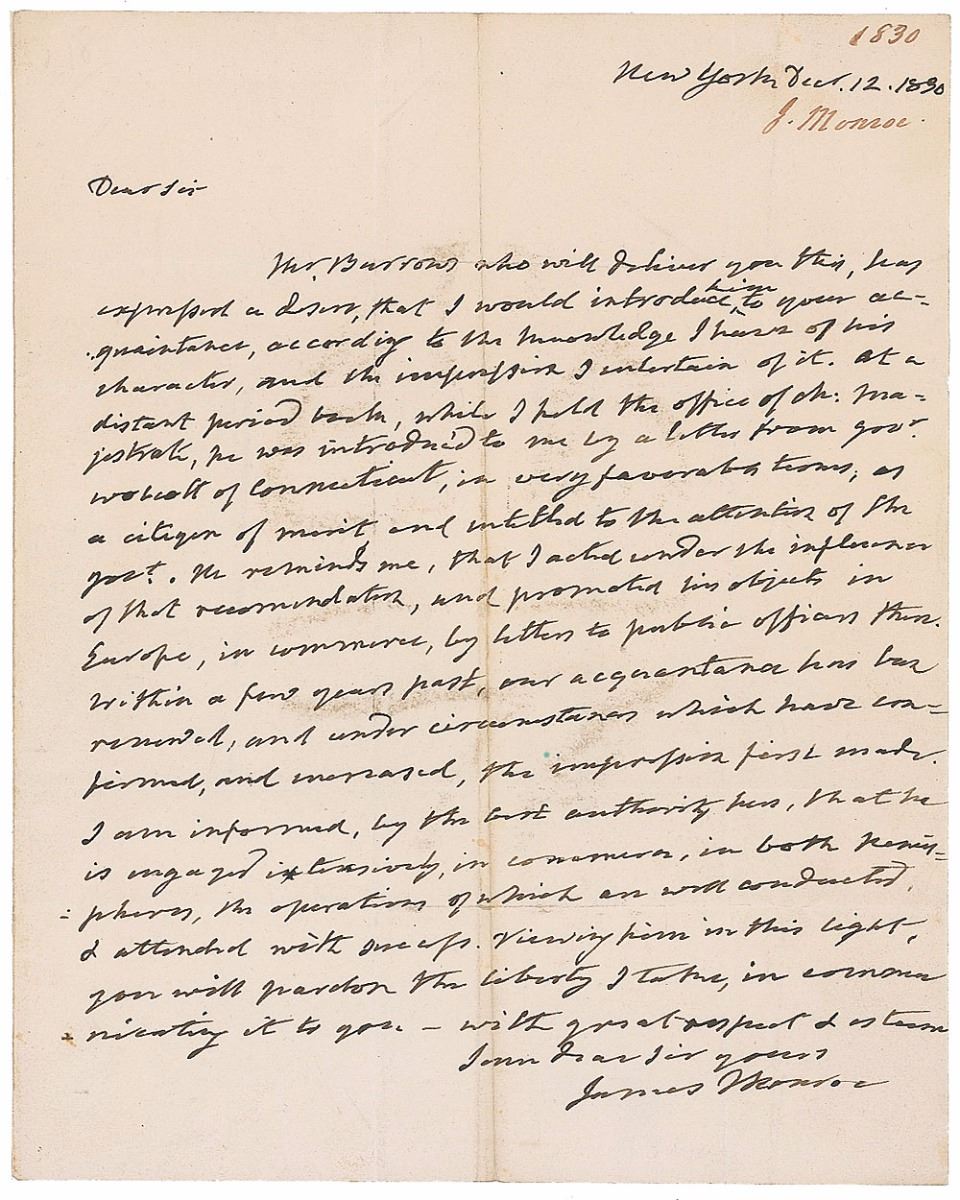 1830
New York Decr. 12. 1830
J. Monroe.
Dear Sir
Mr. Burrows who will deliver you this, has
expressed a desire, that I would introduce him to your ac-
quaintance, according to the knowledge I have of his
character, and the impression I entertain of it. At a
distant period back, while I held the office of ch: ma-
jistrate, he was introduc'd to me by a letter from govr.
wolcott of Connecticut, in very favorable terms, as
a citizen of merit and intitled to the attention of the
govt. He reminds me, that I acted under the influence
of that recomendation, and promoted his objects in
Europe, in commerce, by letters to public officers there.
Within a few years past, our acquaintance has been
renew'd, and under circumstances which have con-
firmed, and increased, the impression first made.
I am informed, by the best authority here, that he
is engaged extensively, in commerce, in both hemis-
pheres, the operations of which are well conducted,
& attended with success. Viewing him in this light,
you will pardon the liberty I take, in commu
nicating it to you - with great respect & esteem
I am dear Sir yours
James Monroe